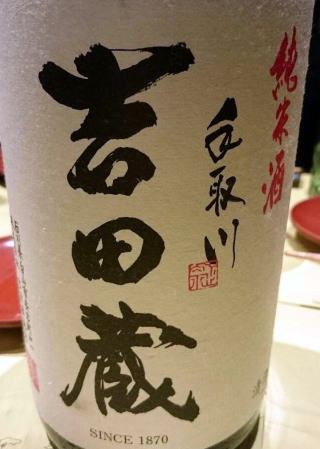 純米酒
手取川
吉田蔵
SINCE 1870